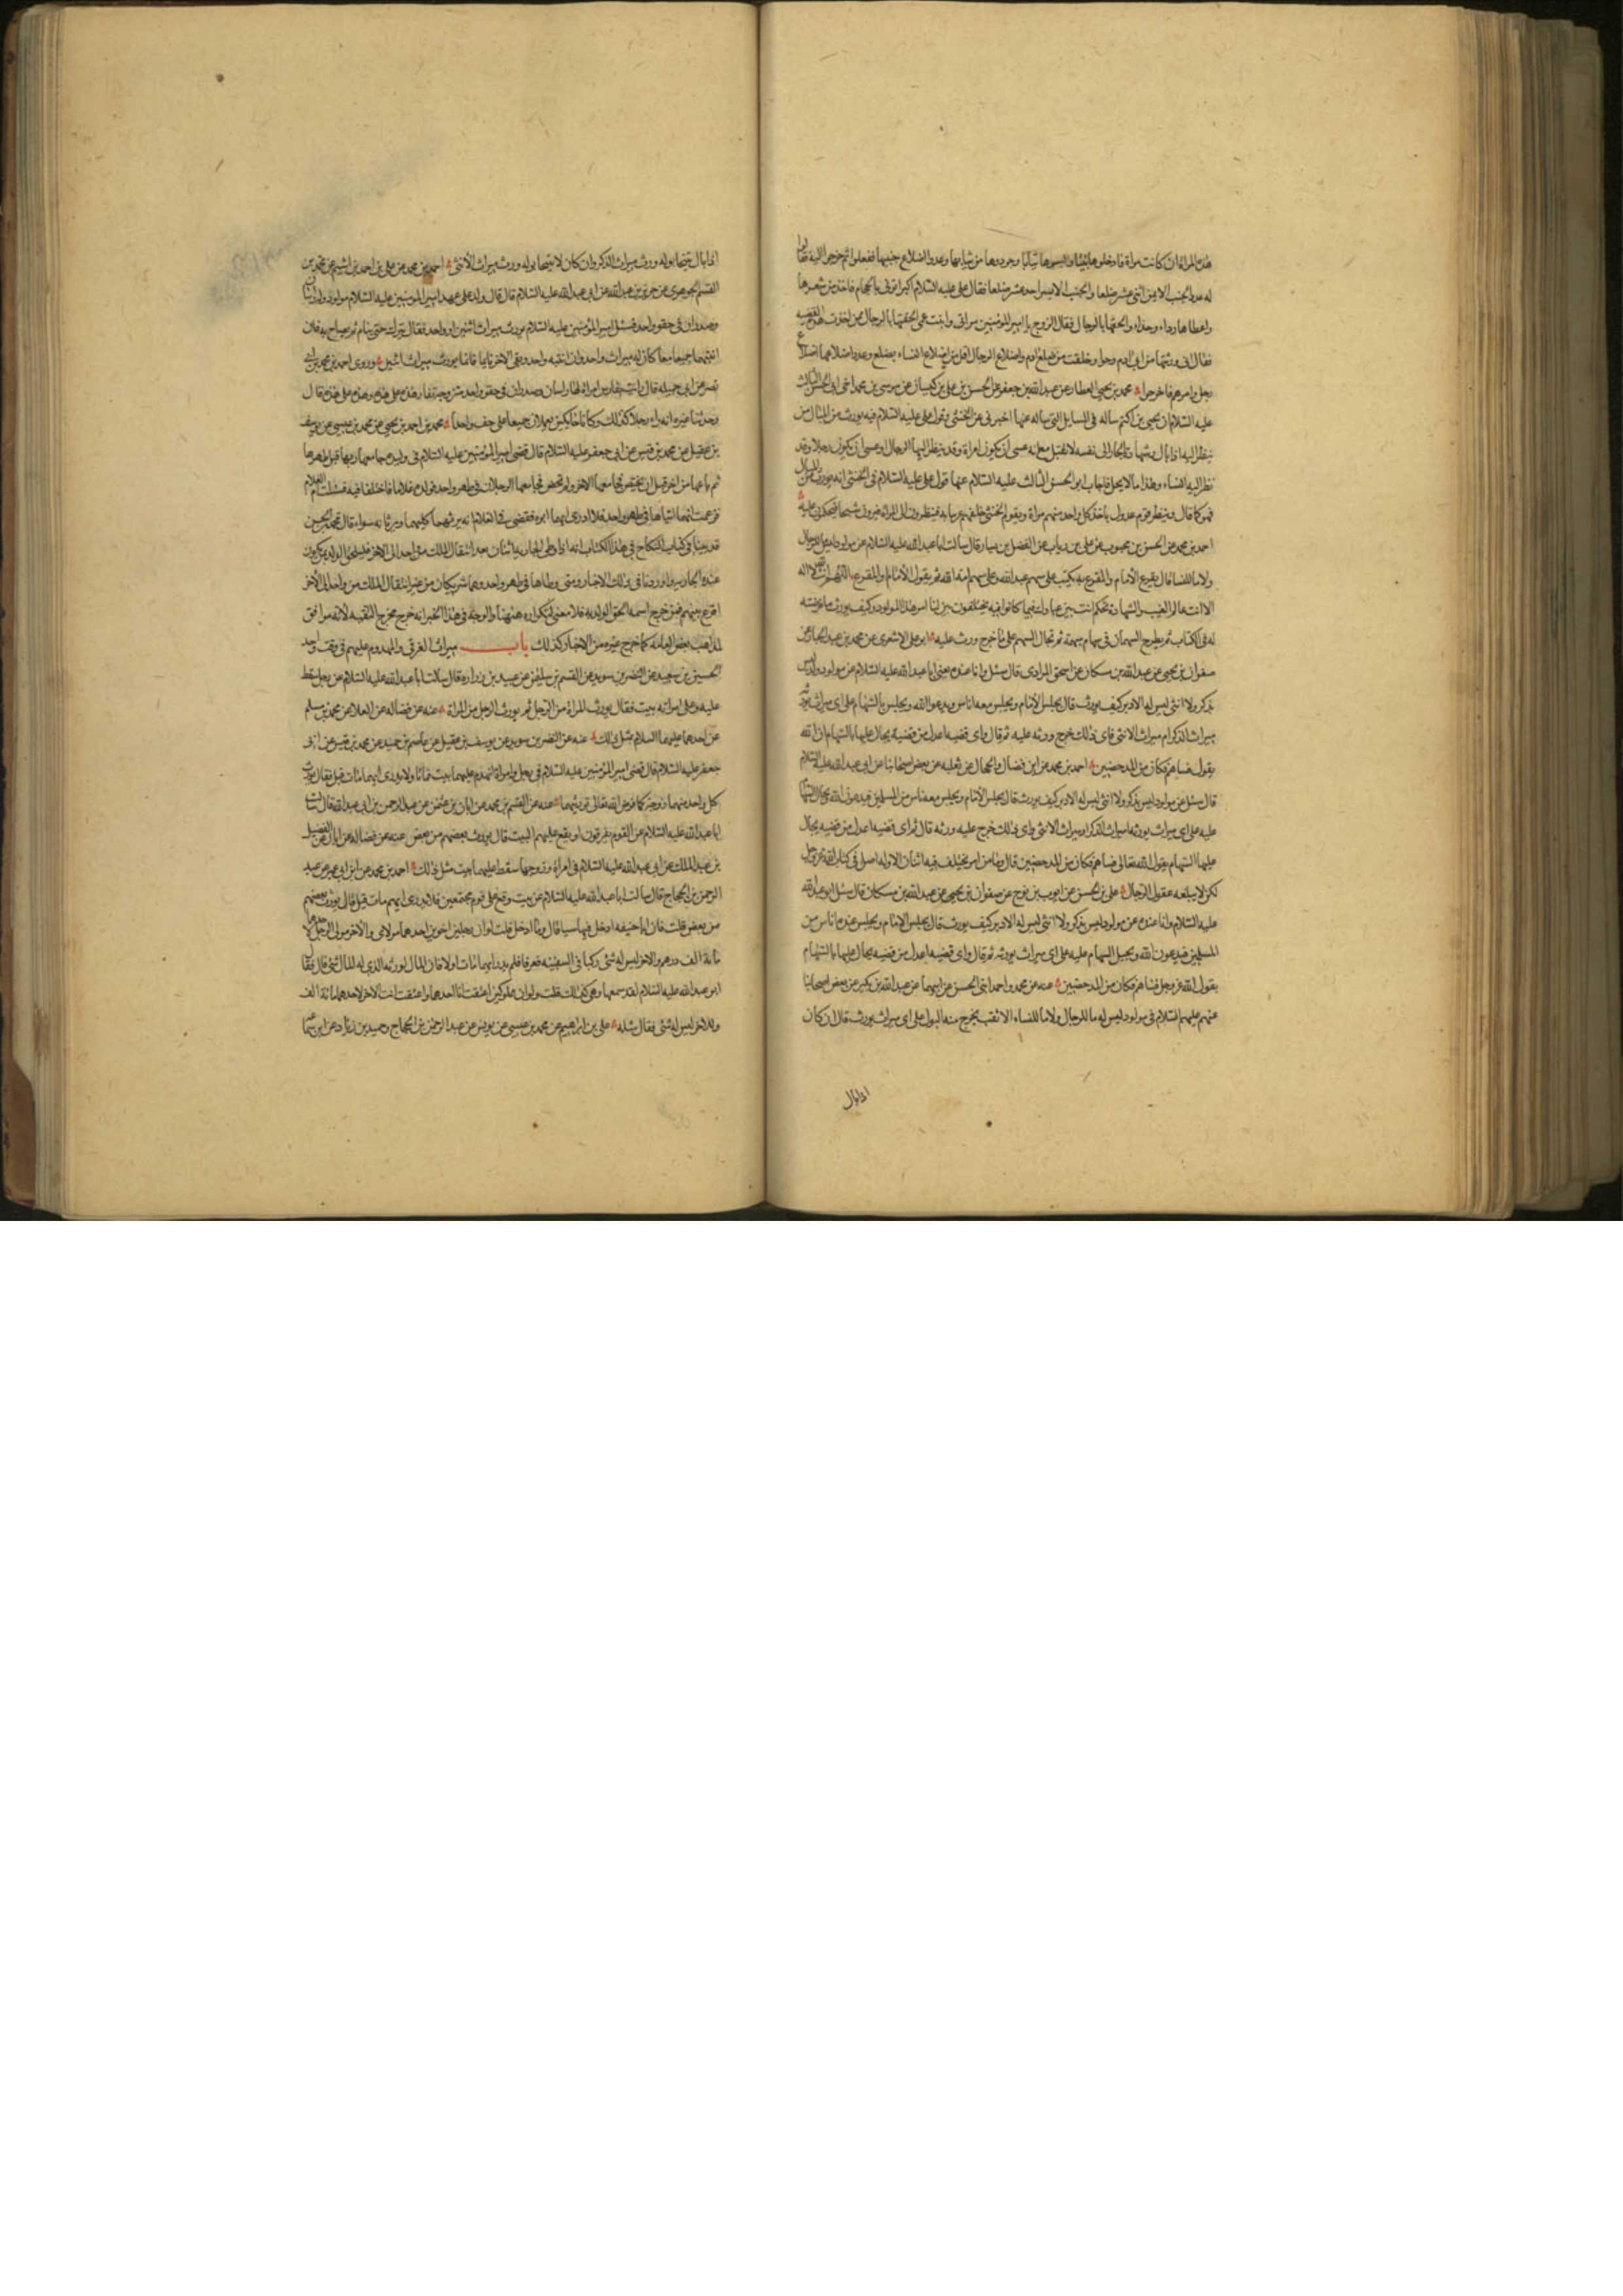 هذه المراة ان كانت مراة فادخلوها بيتا والبسوها ثيابا وجردوها من ثيابها وعدوا اضلاع جنبيها ففعلوا ثم خرجوا اليه فقالوا
له عدد الجنب الايمن اثنى عشر ضلعا والجنب الايسر احد عشر ضلعا فقال على عليه السلام الله اكبر ايتونى بالحجام فاخذ من شعرها
واعطاها رداء وحذاء والحقها بالرجال فقال الزوج يا امير المؤمنين امراتى وابنت عمى الحقتها بالرجال ممن اخذت هذه القضيه
فقال انى ورثتها من ابى ادم وحوا وخلقت من ضلع ادم واضلاع الرجال اقل من اضلاع النساء بضلع وعدد اضلاعها اضلاع
رجل وامرهم فاخرجوا محمد بن يحيى العطار عن عبد الله بن جعفر عن الحسن بن على بن كيسان عن موسى بن محمد اخى ابى الحسن الثالث
عليه السلام ان يحيى بن اكثم ساله فى المسايل التى ساله عنها اخبرنى عن الخنثى وقول على عليه السلام فيه يورث من المبال من
ينظر اليه اذا بال وشهادة الجار الى نفسه لا تقبل مع انه عسى ان يكون امراة وقد نظر اليها الرجال او عسى ان يكون رجلا وقد
نظر اليه النساء وهذا ما لا يحل فاجاب ابو الحسن الثالث عليه السلام عنها قول على عليه السلام فى الخنثى انه يورث من المبال
فهو كما قال وينظر قوم عدول ياخذ كل واحد منهم مراة ويقوم الخنثى خلفهم عريانه فينظرون الى المراة فيرون شبحا فيحكمون عليه
احمد بن محمد عن الحسن بن محبوب عن على بن رياب عن الفضيل بن يسار قال سالت ابا عبد الله عليه السلام عن مولود ليس له ما للرجال
ولا ما للنسا قال يقرع الامام والمقرع به يكتب على سهم عبد الله وعلى سهم امة الله ثم يقول الامام والمقرع اللهم انت الله لا اله
الا انت عالم الغيب والشهادة تحكم انت بين عبادك فيما كانوا فيه يختلفون بين لنا امر هذا المولود كيف يورث ما فرضت
له فى الكتاب ثم يطرح السهمان فى سهام مبهمة ثم تجال السهم على ما خرج ورث عليه ابو على الاشعرى عن محمد بن عبد الجبار عن
صفوان بن يحيى عن عبد الله بن مسكان عن اسحق المرادى قال سئل وانا عنده يعنى ابا عبد الله عليه السلام عن مولود ولد ليس
بذكر ولا انثى ليس له الا دبر كيف يورث قال يجلس الامام ويجلس معه اناس ويدعو الله ويجلس بالسهام على اى ميراث يورثه
ميراث الذكر ام ميراث الانثى فاى ذلك خرج ورثه عليه ثم قال واى قضيه اعدل من قضية يجال عليها بالسهام ان الله
يقول فساهم فكان من المدحضين احمد بن محمد عن ابن فضال والحجال عن ثعلبه عن بعض اصحابنا عن ابى عبد الله عليه السلام
قال سئل عن مولود ليس بذكر ولا انثى ليس له الا دبر كيف يورث قال يجلس الامام ويجلس معه ناس من المسلمين فيدعون الله ويجال السهام
عليه على اى ميراث يورثه اميراث الذكر او ميراث الانثى واى ذلك خرج عليه ورثه قال ثم اى قضيه اعدل من قضيه يجال
عليها السهام يقول الله تعالى فساهم فكان من المدحضين قال وما من امر يختلف فيه اثنان الا وله اصل فى كتاب الله عز وجل
لكن لا يبلغه عقول الرجال على بن الحسن عن ايوب بن نوح عن صفوان بن يحيى عن عبد الله بن مسكان قال سئل ابو عبد الله
عليه السلام وانا عنده عن مولود ليس بذكر ولا انثى ليس له الا دبر كيف يورث قال يجلس الامام ويجلس عنده اناس من
المسلمين فيدعون الله ويجيل السهام عليه على اى ميراث يورثه ثم قال واى قضيه اعدل من قضيه يجال عليها بالسهام
يقول الله عز وجل فساهم فكان من المدحضين عنه عن محمد واحمد ابنى الحسن عن ابيهما عن عبد الله بن بكير عن بعض اصحابنا
عنهم عليهم السلام فى مولود ليس له ما للرجال ولا ما للنساء الا ثقب يخرج منه البول على اى ميراث يورث قال ان كان
اذا بال
اذا بال يتنحا بوله ورث ميراث الذكر وان كان لا يتنحا بوله ورث ميراث الانثى احمد بن محمد عن على بن احمد بن اشيم عن محمد بن
القسم الجوهرى عن حريز بن عبد الله عن ابى عبد الله عليه السلام قال قال ولد على عهد امير المومنين عليه السلام مولود له راسان
وصدران فى حقو واحد فسئل امير المؤمنين عليه السلام يورث ميراث اثنين او واحد فقال يترك حتى ينام ثم يصاح به فان
انتبها جميعا معا كان له ميراث واحد وان انتبه واحد وبقى الاخر نايما فانما يورث ميراث اثنين وروى احمد بن محمد بن ابى
نصر عن ابى جميله قال رايت بفارس امراة لها راسان وصدران فى حقو واحد متزوجة تغار هذه على هذه وهذه على هذه قال
وحدثنا غيره انه راى رجلا كذلك وكانا حائكين يعملان جميعا على حف واحد محمد بن احمد بن يحيى عن محمد بن عيسى عن يوسف
بن عقيل عن محمد بن قيس عن ابى جعفر عليه السلام قال قضى امير المؤمنين عليه السلام فى وليده جامعها ربها قبل طهرها
ثم باعها من اخر قبل ان تحيض فجامعها الاخر ولم تحض فجامعها الرجلان فى طهر واحد فولدت غلاما فاختلفا فيه فسئلت ام الغلام
فزعمت انهما اتياها فى طهر واحد فلا ادرى ايهما ابوه فقضى فى الغلام انه يرثهما كليهما ويرثانه سواء قال محمد بن الحسن
قد بينا فى كتاب النكاح فى هذا الكتاب انه اذا وطى الجاريه اثنان بعد انتقال الملك من واحد الى الاخر فليلحق الولد بمن يكون
عنده الجاريه واوردنا فى ذلك الاخبار ومتى وطاها فى طهر واحد وهما شريكان من غير انتقال الملك من واحد الى الاخر
اقرع بينهم فمن خرج اسمه الحق الولد به فلا معنى لتكراره ههنا والوجه فى هذا الخبر انه خرج مخرج التقيه لانه موافق
لمذاهب بعض العامه كما خرج غيره من الاخبار كذلك باب ميراث الغرقى والمهدوم عليهم فى وقت واحد
الحسين بن سعيد عن النضر بن سويد عن القسم بن سليمن عن عبيد بن زراره قال سالت ابا عبد الله عليه السلام عن رجل سقط
عليه وعلى امراته بيت فقال يورث المراة من الرجل ثم يورث الرجل من المراة عنه عن فضاله عن العلا عن محمد بن مسلم
عن احدهما عليهما السلام مثل ذلك عنه عن النضر بن سويد عن يوسف بن عقيل عن عاصم بن حميد عن محمد بن قيس عن ابى
جعفر عليه السلام قال قضى امير المؤمنين عليه السلام فى رجل وامراة انهدم عليهما بيت فماتا ولا يدرى ايهما مات قبل فقال يورث
كل واحد منهما زوجه كما فرض الله تعالى تورثهما عنه عن القسم بن محمد عن ابان بن عثمن عن عبد الرحمن بن ابى عبد الله قال سالت
ابا عبد الله عليه السلام عن القوم يغرقون او يقع عليهم البيت قال يورث بعضهم من بعض عنه عن فضاله عن ابان عن الفضيل
بن عبد الملك عن ابى عبد الله عليه السلام فى امراة وزوجها سقط عليهما بيت مثل ذلك احمد بن محمد عن ابن ابى عمير عن عبد
الرحمن بن الحجاج قال سالت ابا عبد الله عليه السلام عن بيت وقع على قوم مجتمعين فلا يدرى ايهم مات قبل قال يورث بعضهم
من بعض قلت فان ابا حنيفه ادخل فيها شيا قال وما ادخل قلت لو ان رجلين اخوين احدهما مولاى والاخر مولى لرجل لاحدهما
مائة الف درهم والاخر ليس له شئ ركبا فى السفينه فغرقا فلم يدر ايهما مات اولا فان المال لورثه الذى ليس له شئ قال فقال
ابو عبد الله عليه السلام لقد سمعها وهى كذلك قلت ولو ان مملوكين اعتقت انا احدهما واعتقت انت الاخر لاحدهما مائة الف
وللاخر ليس له شئ فقال مثله على بن ابراهيم عن محمد بن عيسى عن يونس عن عبد الرحمن بن الحجاج وحميد بن زياد عن ابن سماعه